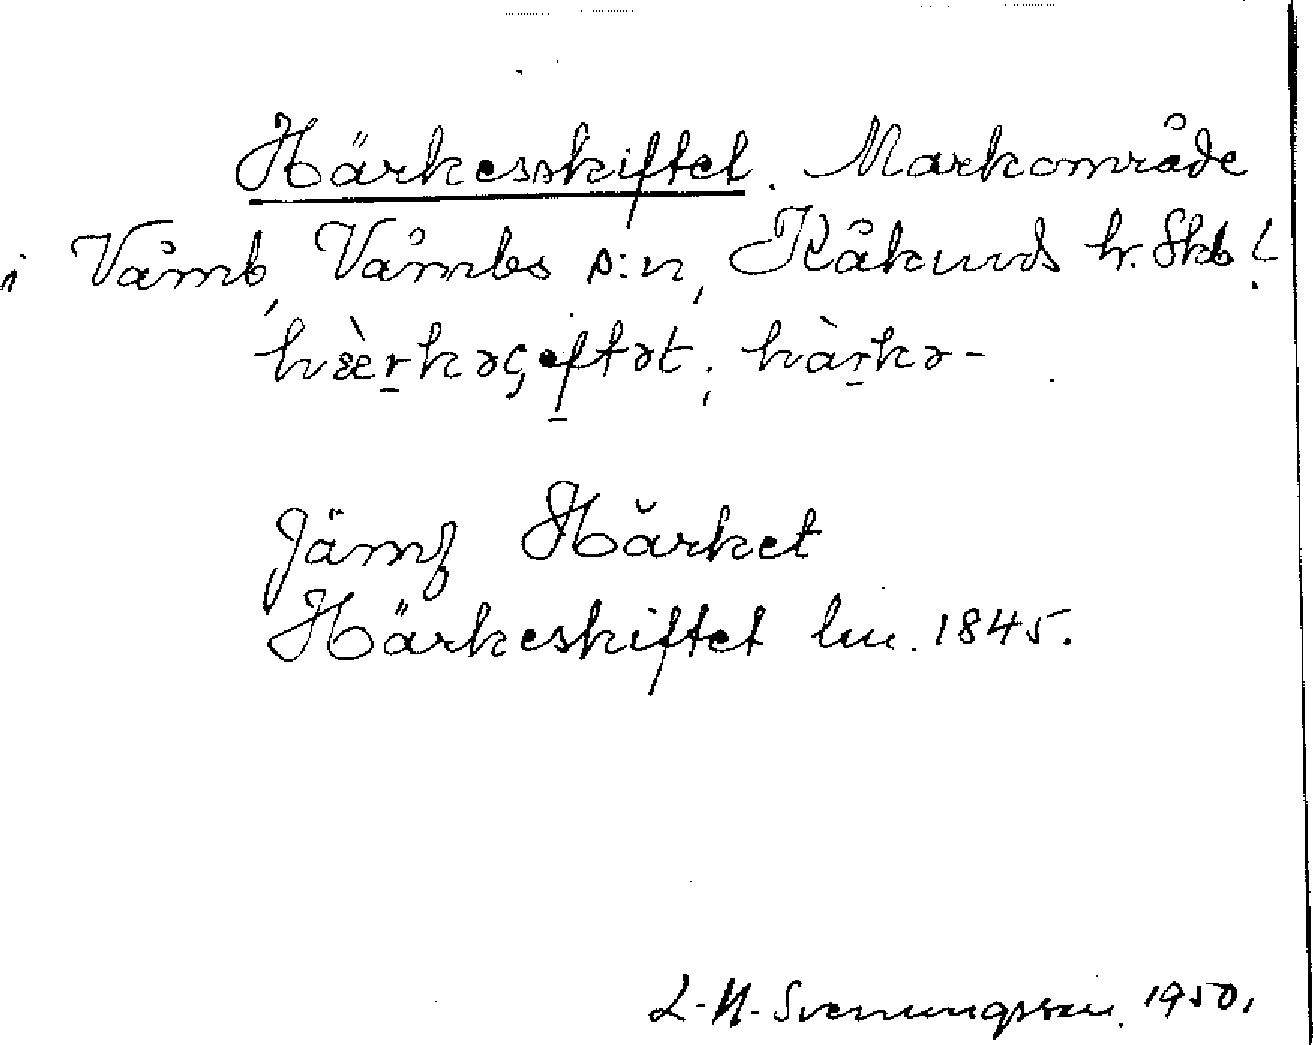 Härkesskiftet. Markområde
i Våmb, Våmbs s:n, Kåkinds hr. Skb l.
hæ̀r̠kəçeftət; hàr̠kə-
Jämf Härket
Härkeskiftet lm. 1845.
L-H- Svenungsson. 1950.